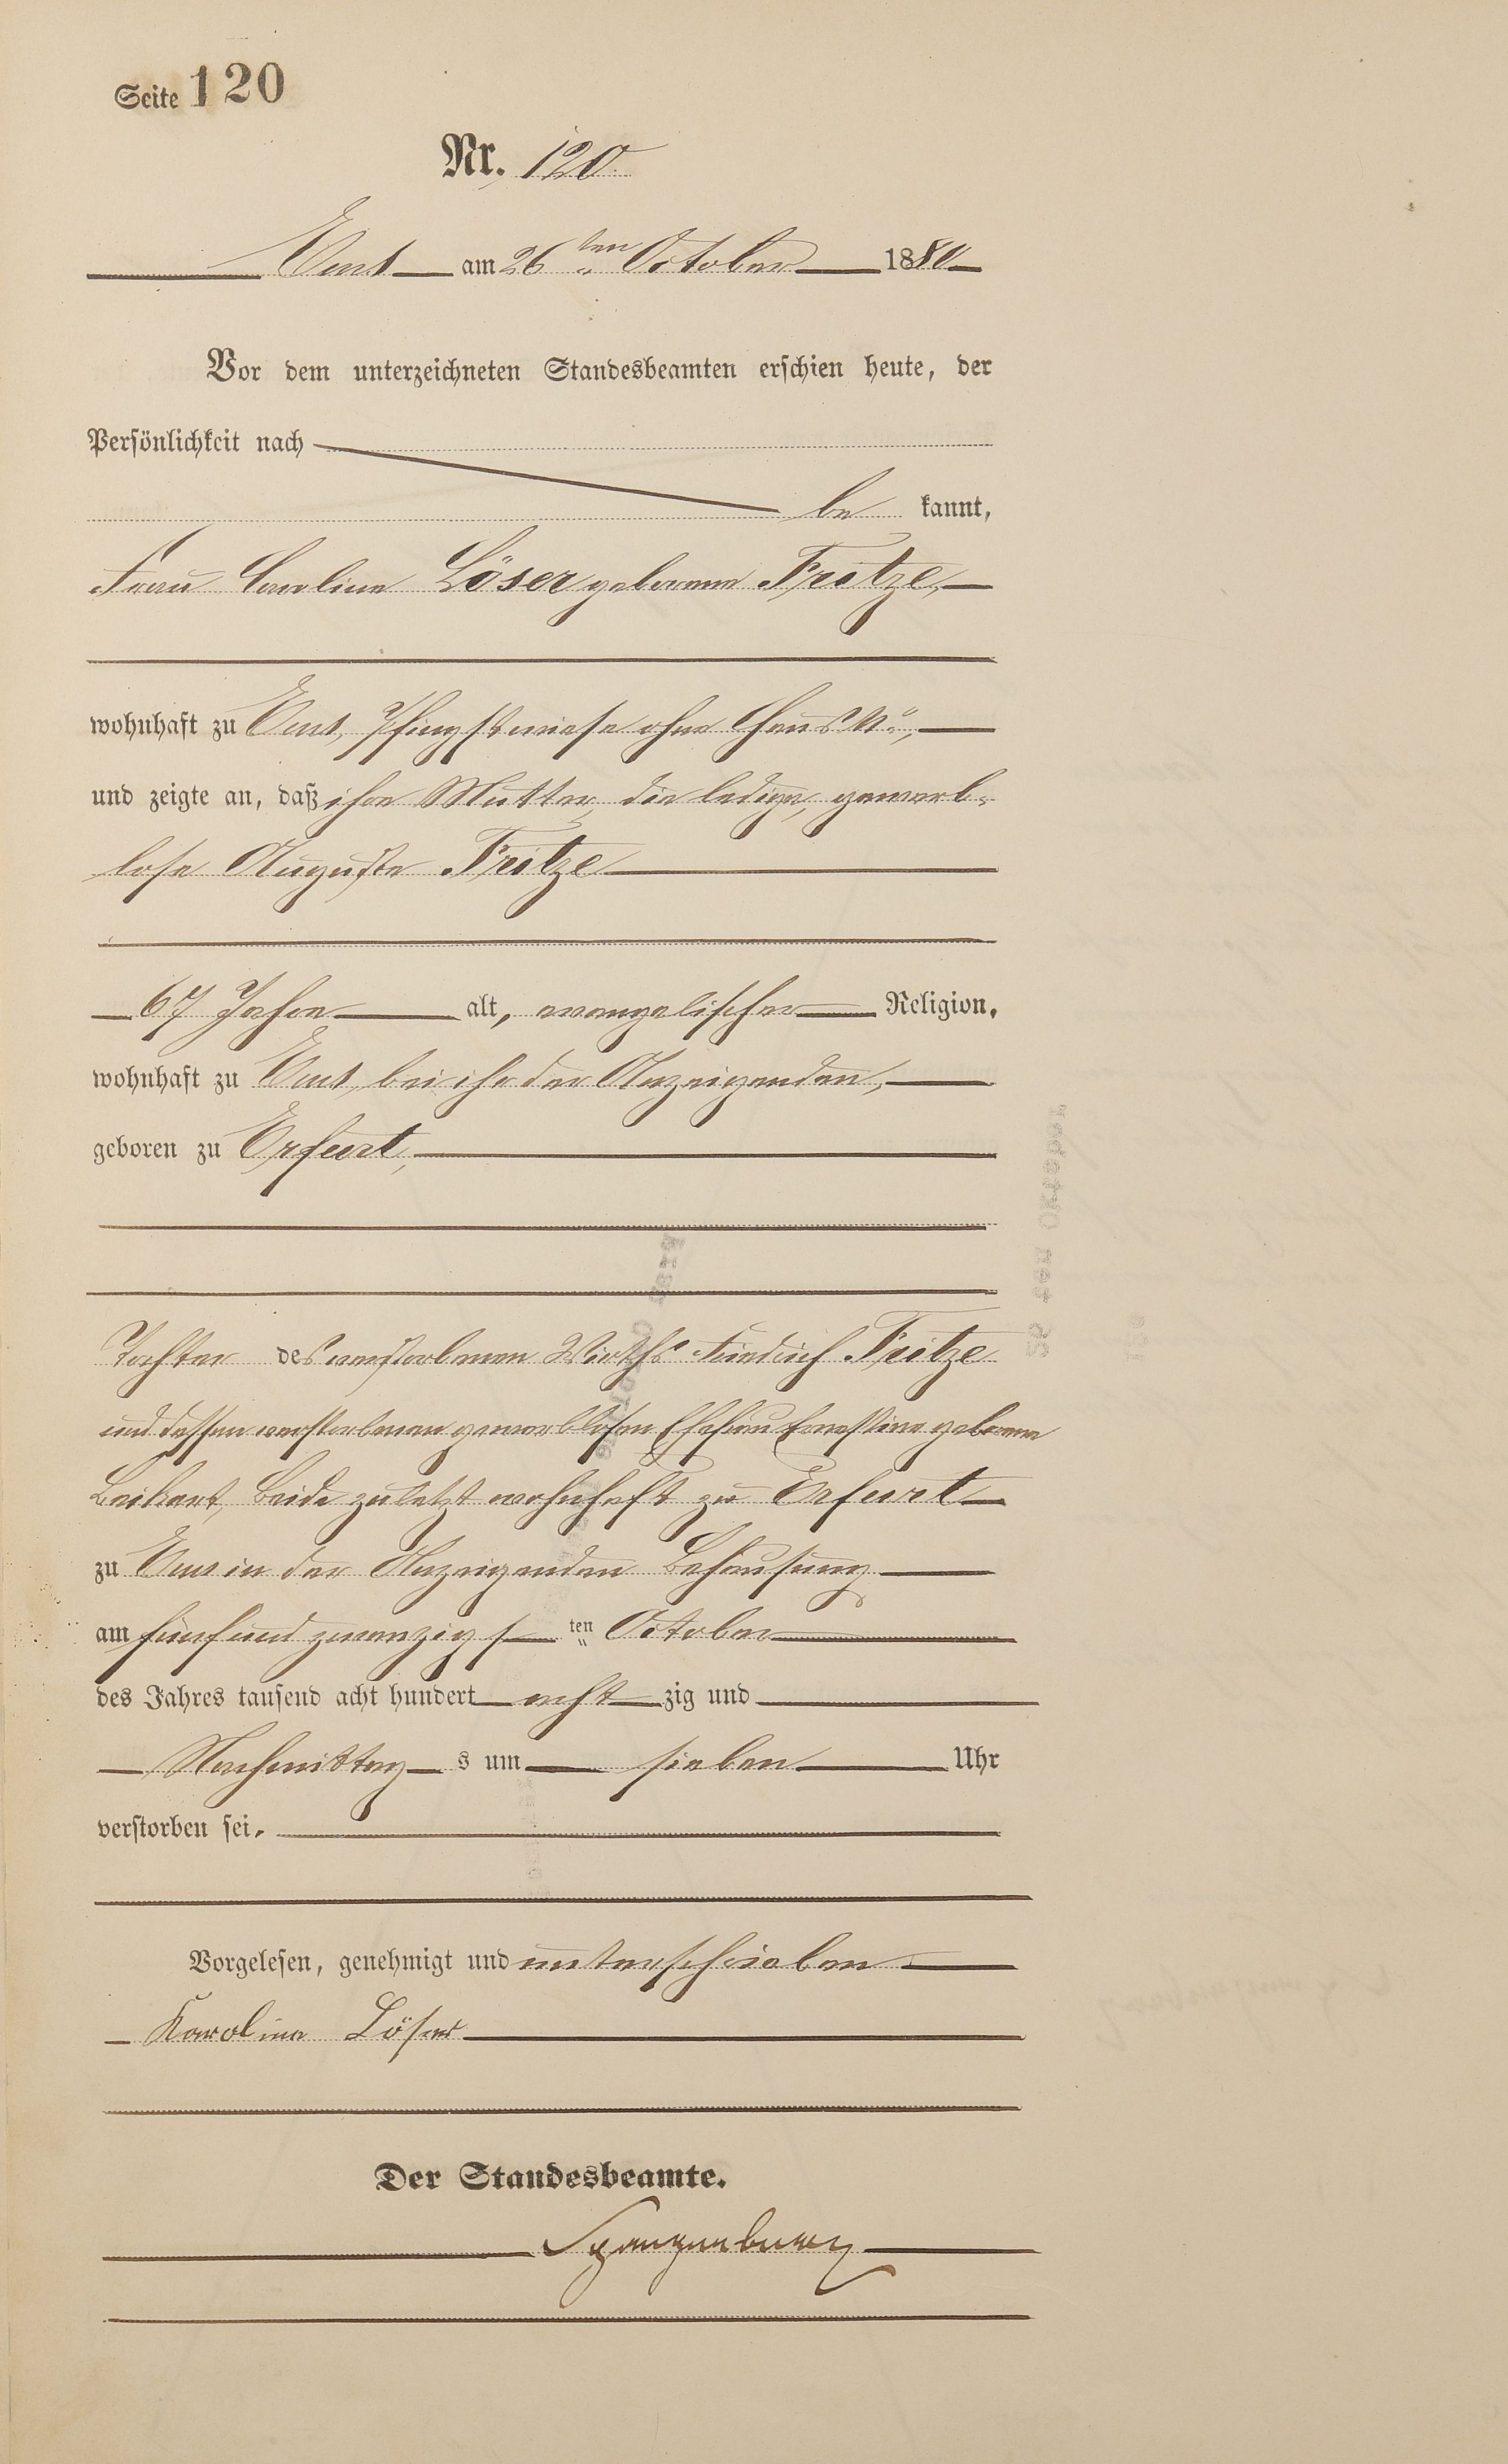 Seite 120
Nr. 120
Ems am 26ten October 1880
Vor dem unterzeichneten Standesbeamten erschien heute, der
Persönlichkeit nach
be kannt,
Frau Caroline Löser geborene Fritze,
wohnhaft zu Ems, Pfingstwiese ohne Haus No,
und zeigte an, daß ihre Mutter, die ledige, gewerb-
lose Auguste Fritze
67 Jahre alt, evangelischer Religion,
wohnhaft zu Ems, bei ihr der Anzeigenden,
geboren zu Erfurt,
Tochter des verstorbenen Wirths Friedrich Fritze
und dessen verstorbenen gewerblosen Ehefrau Ernestine geborene
Beide zuletzt wohnhaft zu Erfurt
zu Ems in der Anzeigenden Behausung
am fünf und zwanzigsten October
des Jahres tausend acht hundert acht zig und
Nachmittags um sieben Uhr
verstorben sei.
Vorgelesen, genehmigt und unterschrieben
Karoline Löser
Der Standesbeamte.
Spangenberg